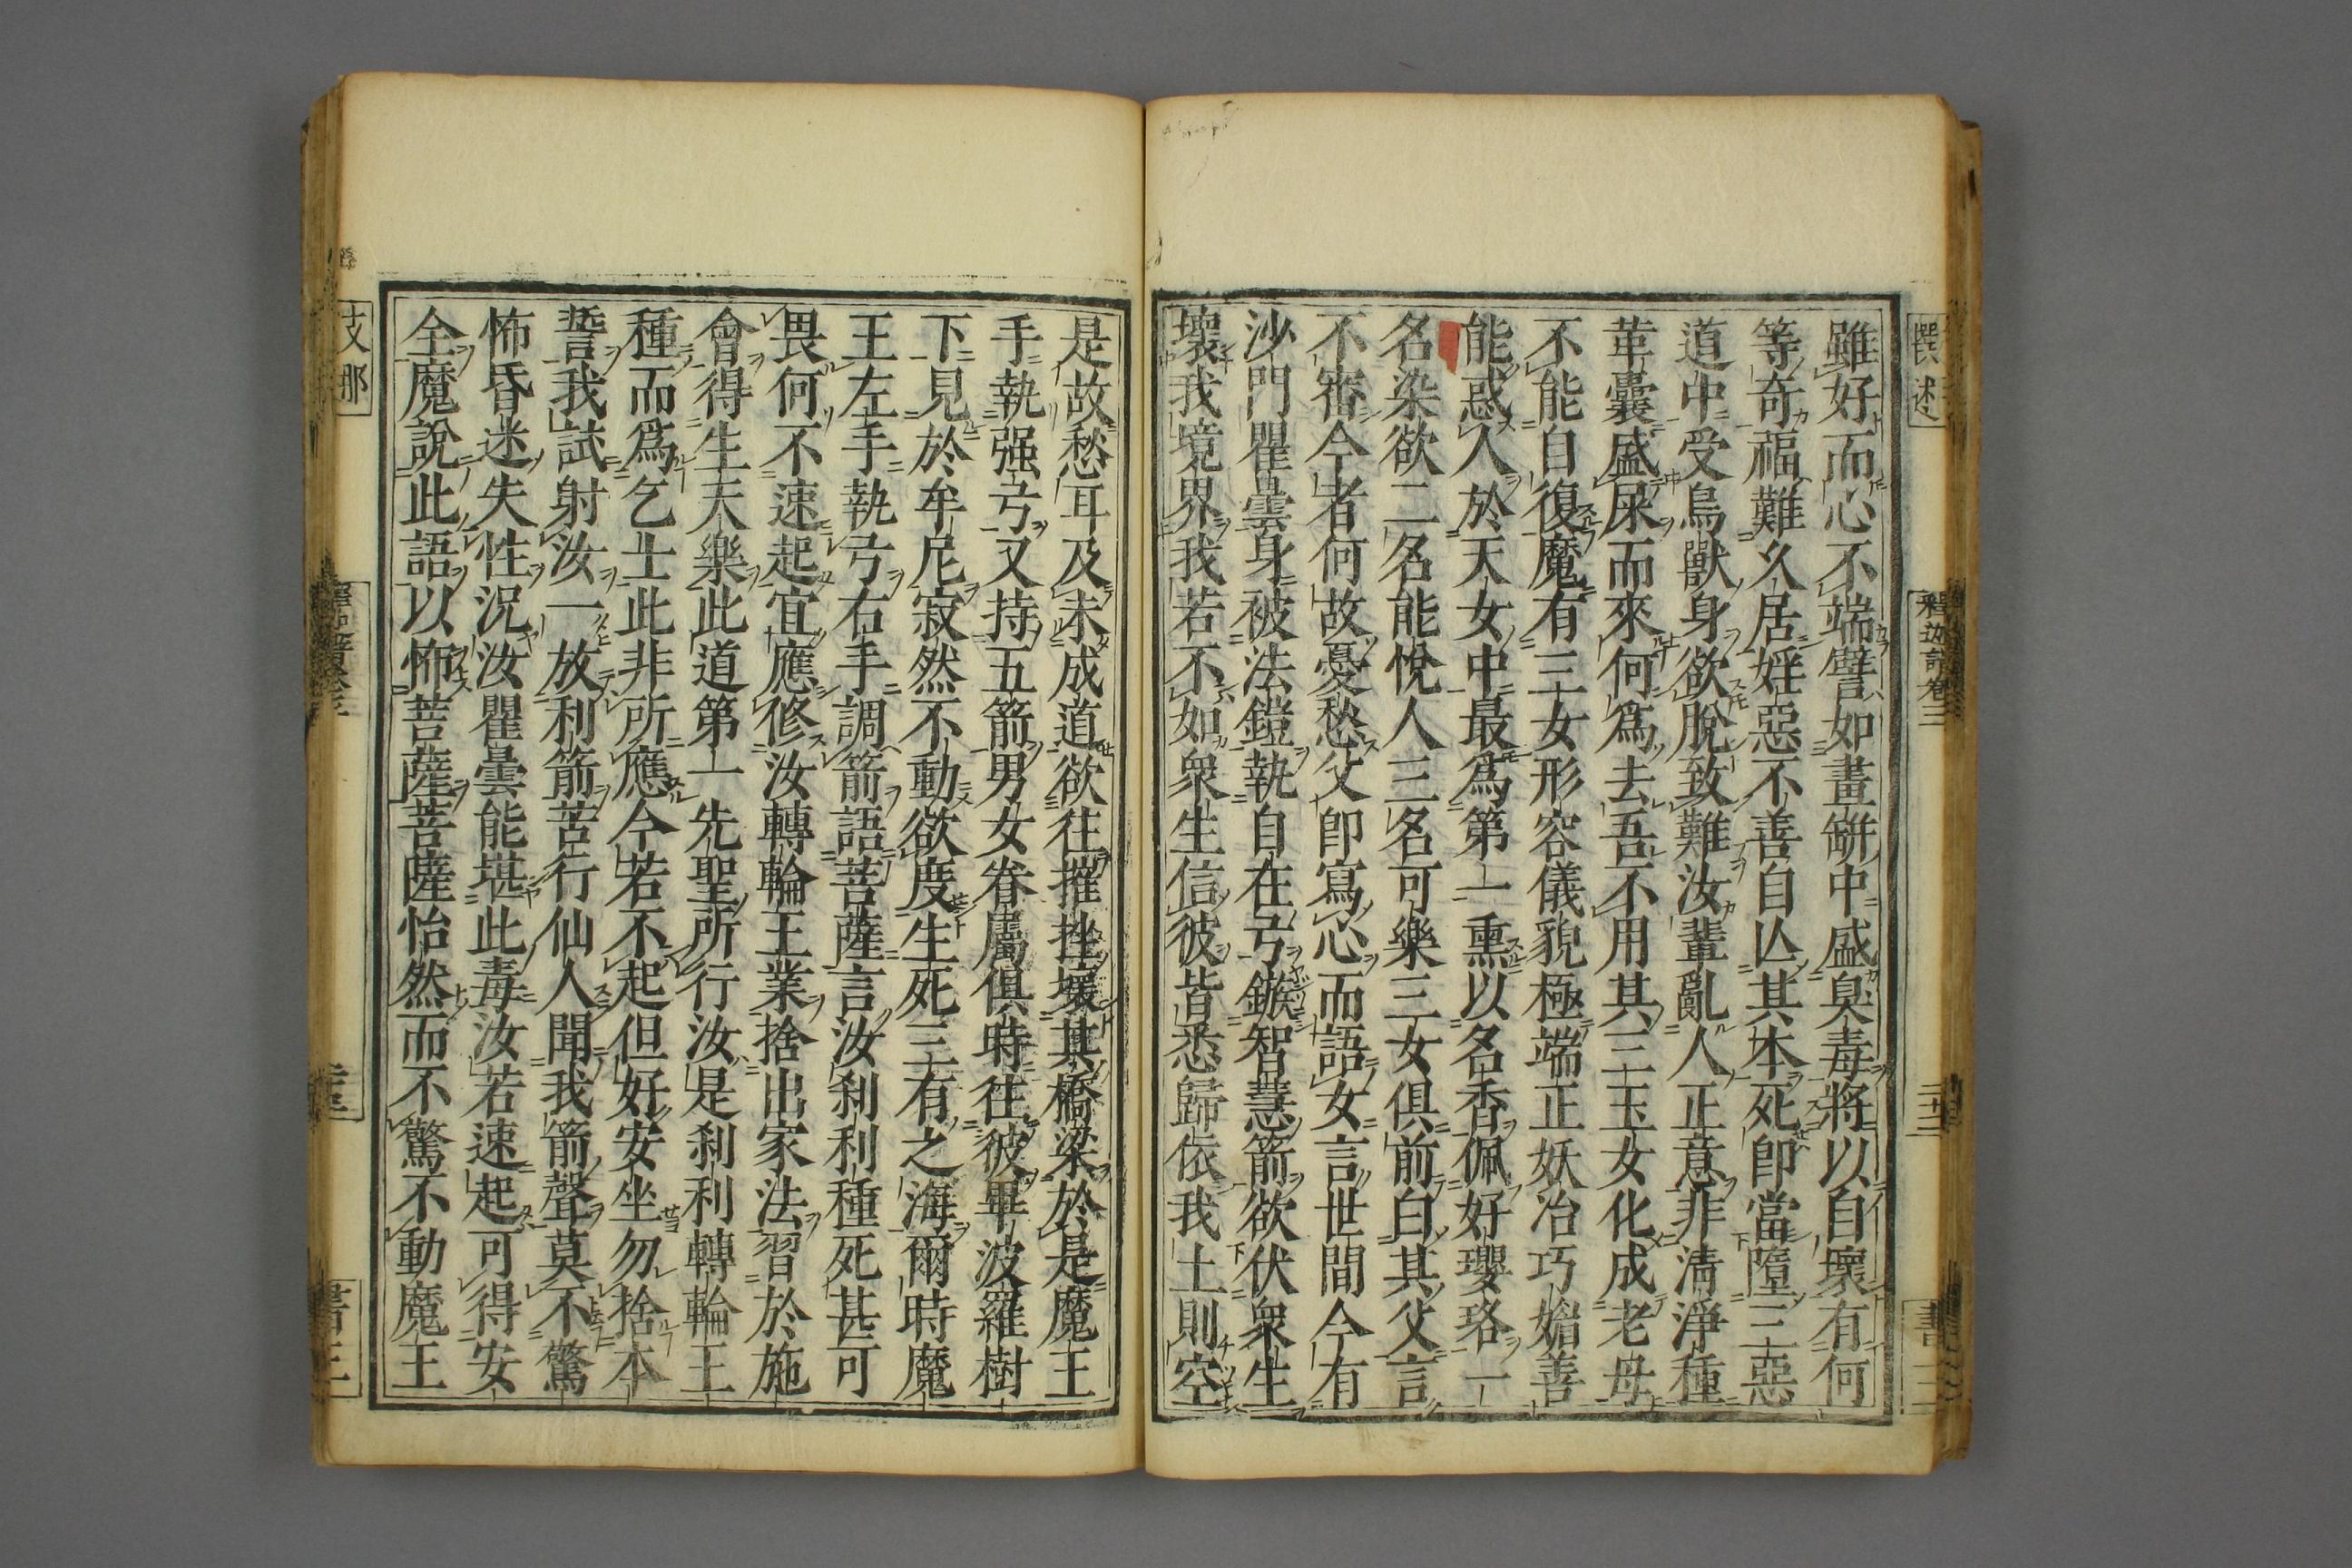 撰述
釋迦譜卷三
雖好而心不端譬如畫缾中盛臭毒將以自壞有何
等奇福難久居婬惡不善自亾其本死卽當墮三惡
道中受鳥獸身欲脫致難汝輩亂人正意非淸淨種
革囊盛屎而來何爲去吾不用其三玉女化成老母
不能自復魔有三女形容儀貌極端正妖冶巧媚善
能惑人於天女中最爲第一熏以名香佩好瓔珞一
名染欲二名能悅人三名可樂三女俱前白其父言
不審今者何故憂愁父卽寫心而語女言世間今有
沙門瞿曇身被法鎧執自在弓鏃智慧箭欲伏衆生
壞我境界我若不如衆生信彼皆悉歸依我土則空
是故愁耳及未成道欲往摧挫壞其橋梁於是魔王
手執强弓又持五箭男女眷屬俱時往彼畢波羅樹
下見於牟尼寂然不動欲度生死三有之海爾時魔
王左手執弓右手調箭語菩薩言汝刹利種死甚可
畏何不速起宜應修汝轉輪王業捨出家法習於施
會得生天樂此道第一先聖所行汝是刹利轉輪王
種而爲乞士此非所應今若不起但好安坐勿捨本
誓我試射汝一放利箭苦行仙人聞我箭聲莫不驚
怖昏迷失性況汝瞿曇能堪此毒汝若速起可得安
全魔說此語以怖菩薩菩薩怡然而不驚不動魔王
支那